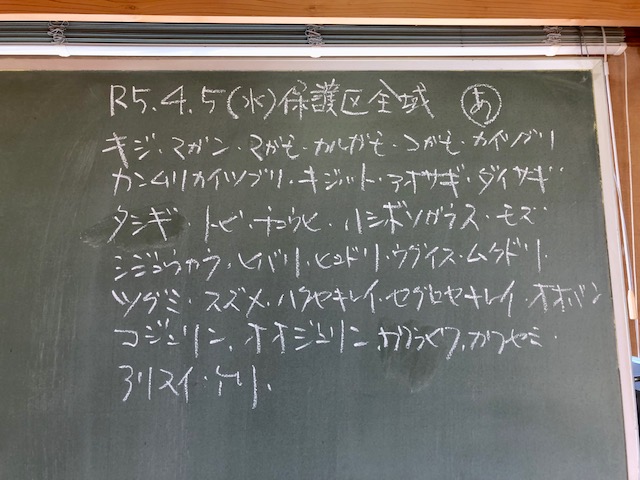 R5.4.5(水)保護区全域 あ
キジ・マガン・マガモ・カルガモ・コガモ・カイツブリ
カンムリカイツブリ・キジバト・アオサギ・ダイサギ
タシギ・トビ・チュウヒ・ハシボソガラス・モズ
シジュウカラ・ヒバリ・ヒヨドリ・ウグイス・ムクドリ・
ツグミ・スズメ・ハクセキレイ・セグロセキレイ・オオバン
コジュリン・オオジュリン・カワラヒワ・カワセミ・
アリスイ・ケリ・